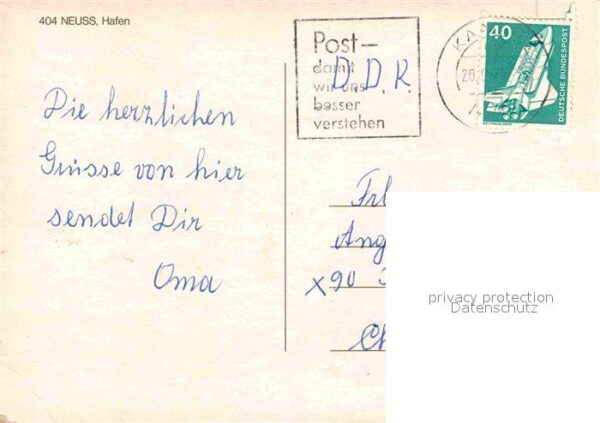 404 NEUSS, Hafen
Post-
damit
wir uns
besser
verstehen
D.D.R.
40
DEUTSCHE BUNDESPOST
Die herzlichen
Grüsse von hier
sendet Dir
Oma
Frl
Ang
X90
privacy protection
Datenschutz